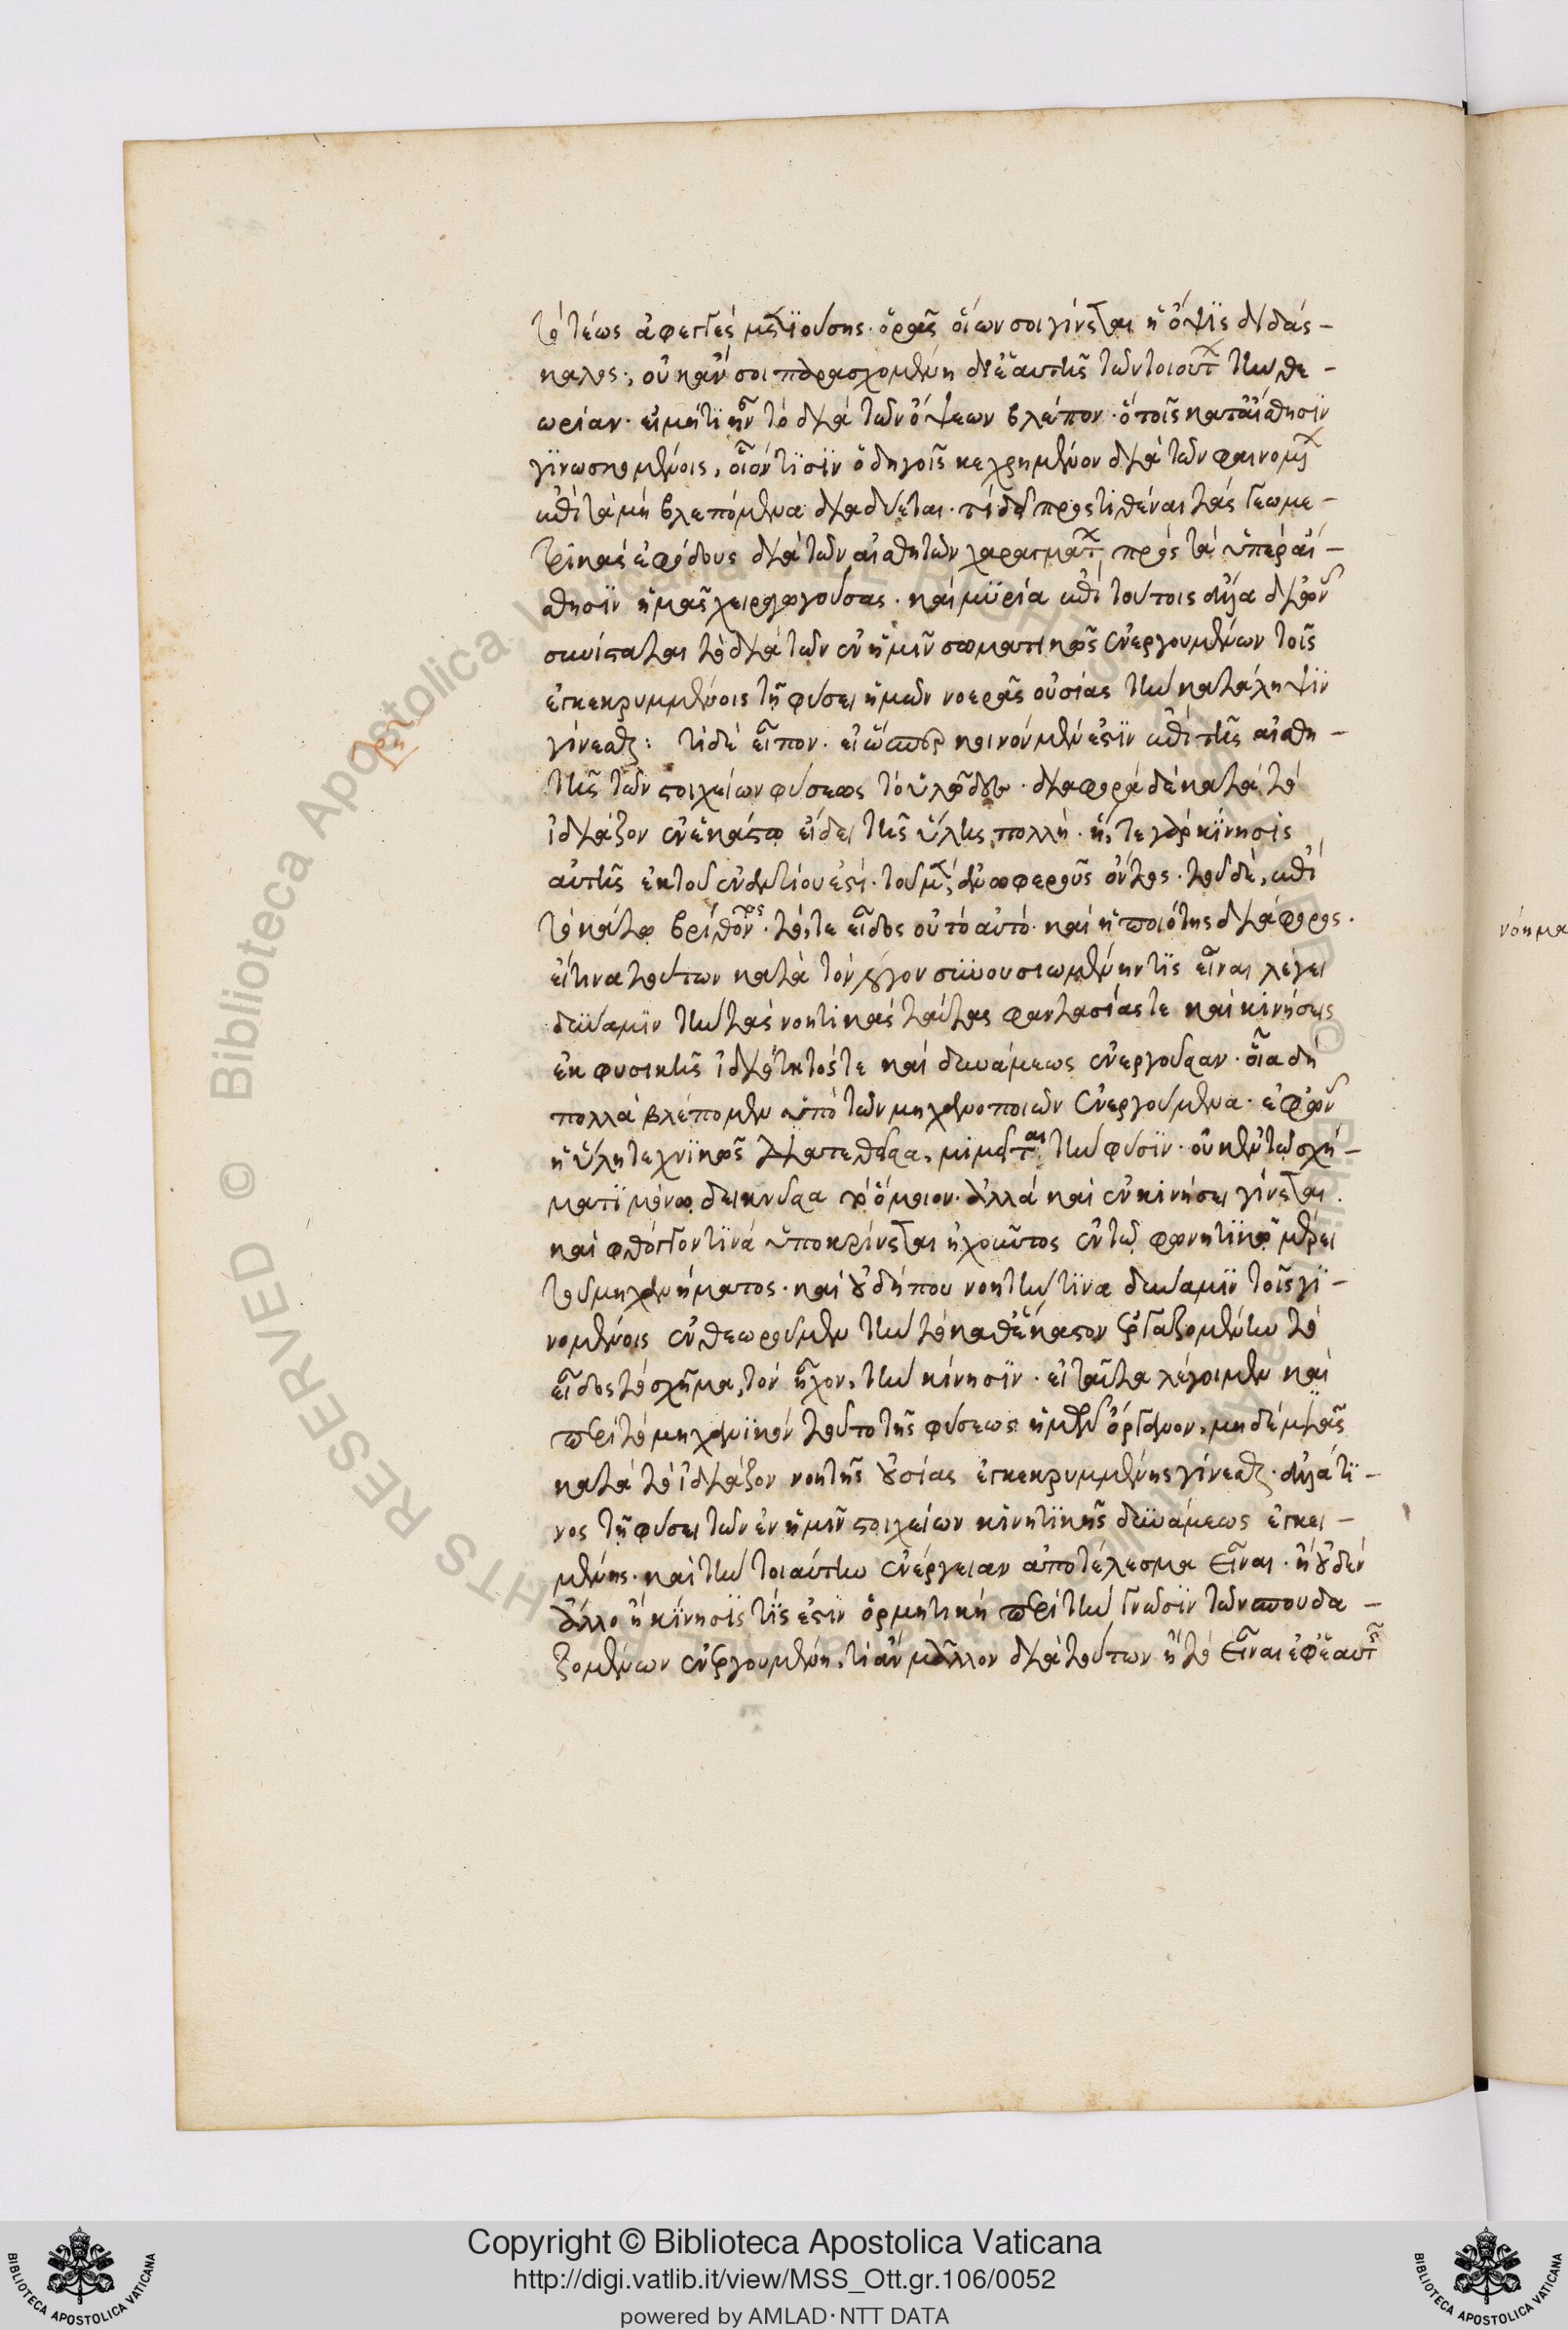 τὸ τέως ἀφεγγὲς μετϊούσης· ὁρᾶς οἵων σοι γίνεται ἡ ὄψϊς διδάσ-
καλος, οὐκ ἄν σοι παρασχομένη δι' ἑαυτῆς τῶν τοιούτων τὴν θε-
ωρίαν· εἰ μή τι ἦν τὸ διὰ τῶν ὄψεων βλέπον· ὃ τοῖς κατ' αἴσθησϊν
γϊνωσκομένοις, οἷόν τϊσϊν ὁδηγοῖς κεχρημένον διὰ τῶν φαινομένων
ἐπὶ τὰ μὴ βλεπόμενα διαδύεται· τί δεῖ προστιθέναι τὰς γεωμε-
τρικὰς ἐφόδους διὰ τῶν αἰσθητῶν χαραγμάτων πρὸς τὰ ὑπὲρ αἴ-
σθησϊν ἡμᾶς χειραγωγούσας· καὶ μυρία ἐπὶ τούτοις ἄλλα δι' ὧν
συνίσταται τὸ διὰ τῶν ἐν ἡμῖν σωματικῶς ἐνεργουμένων τοῖς
ἐγκεκρυμμένοις τῇ φύσει ἡμῶν νοερᾶς οὐσίας τὴν κατάληψϊν
γίνεσθαι: τί δὲ εἶπον· εἰ ὥσπερ κοινὸν μὲν ἐστϊν ἐπὶ τῆς αἰσθη-
τῆς τῶν στοιχείων φύσεως τὸ ὑλῶδες· διαφορὰ δὲ κατὰ τὸ
ἰδιάζον ἐν ἑκάστω εἴδει τῆς ὕλης πολλή· ἥ, τε γὰρ κίνησις
αὐτῆς ἐκ τοῦ ἐναντίου ἐστί· τοῦ μὲν, ἀνωφεροῦς ὄντος· τοῦ δὲ, ἐπὶ
τὸ κάτω βρίθοντος· τό, τε εἶδος οὐ τὸ αὐτό· καὶ ἡ ποιότης διάφορος·
εἴ τινα τούτων κατὰ τὸν λόγον συνουσιωμένην τϊς εἶναι λέγει
δύναμϊν τὴν τὰς νοητικὰς ταύτας φαντασίας τε καὶ κινήσεις
ἐκ φυσικῆς ἰδιότητός τε καὶ δυνάμεως ἐνεργοῦσαν· οἷα δὴ
πολλὰ βλέπομεν ὑπὸ τῶν μηχανοποιῶν ἐνεργούμενα· ἐφ' ὧν
ἡ ὕλη τεχνϊκῶς διατεθεῖσα, μιμεῖται τὴν φύσϊν· οὐκ ἐν τῶ σχή-
ματϊ μόνω δεικνῦσα τὸ ὅμοιον· ἀλλὰ καὶ ἐν κινήσει γίνεται
καὶ φθόγγον τϊνὰ ὑποκρίνεται ἠχοῦντος ἐν τῶ φωνητϊκῶ μέρει
τοῦ μηχανήματος· καὶ οὐ δήπου νοητὴν τϊνα δύναμϊν τοῖς γϊ-
νομένοις ἐνθεωροῦμεν τὴν τὸ καθ' ἕκαστον ἐργαζομένην τὸ
εἶδος τὸ σχῆμα, τὸν ἦχον, τὴν κίνησϊν· εἰ ταῦτα λέγοιμεν καὶ
περὶ τὸ μηχανϊκὸν τοῦτο τῆς φύσεως ἡμῶν ὄργανον, μηδὲ μιᾶς
κατὰ τὸ ἰδιάζον νοητῆς οὐσίας ἐγκεκρυμμένης γίνεσθαι· ἀλλά τϊ-
νος τῇ φύσει τῶν ἐν ἡμῖν στοιχείων κινητϊκῆς δυνάμεως ἐγκει-
μένης· καὶ τὴν τοιαύτην ἐνέργειαν ἀποτέλεσμα εἶναι· ἢ οὐδὲν
ἄλλο ἢ κίνησίς τϊς ἐστϊν ὁρμητικὴ περὶ τὴν γνῶσϊν τῶν σπουδα-
ζομένων ἐνεργουμένη, τί ἂν μᾶλλον διὰ τούτων ἢ τὸ εἶναι ἐφ' ἑαυτῆς
νόημα
Copyright © Biblioteca Apostolica Vaticana
http://digi.vatlib.it/view/MSS_Ott.gr.106/0052
powered by AMLAD·NTT DATA